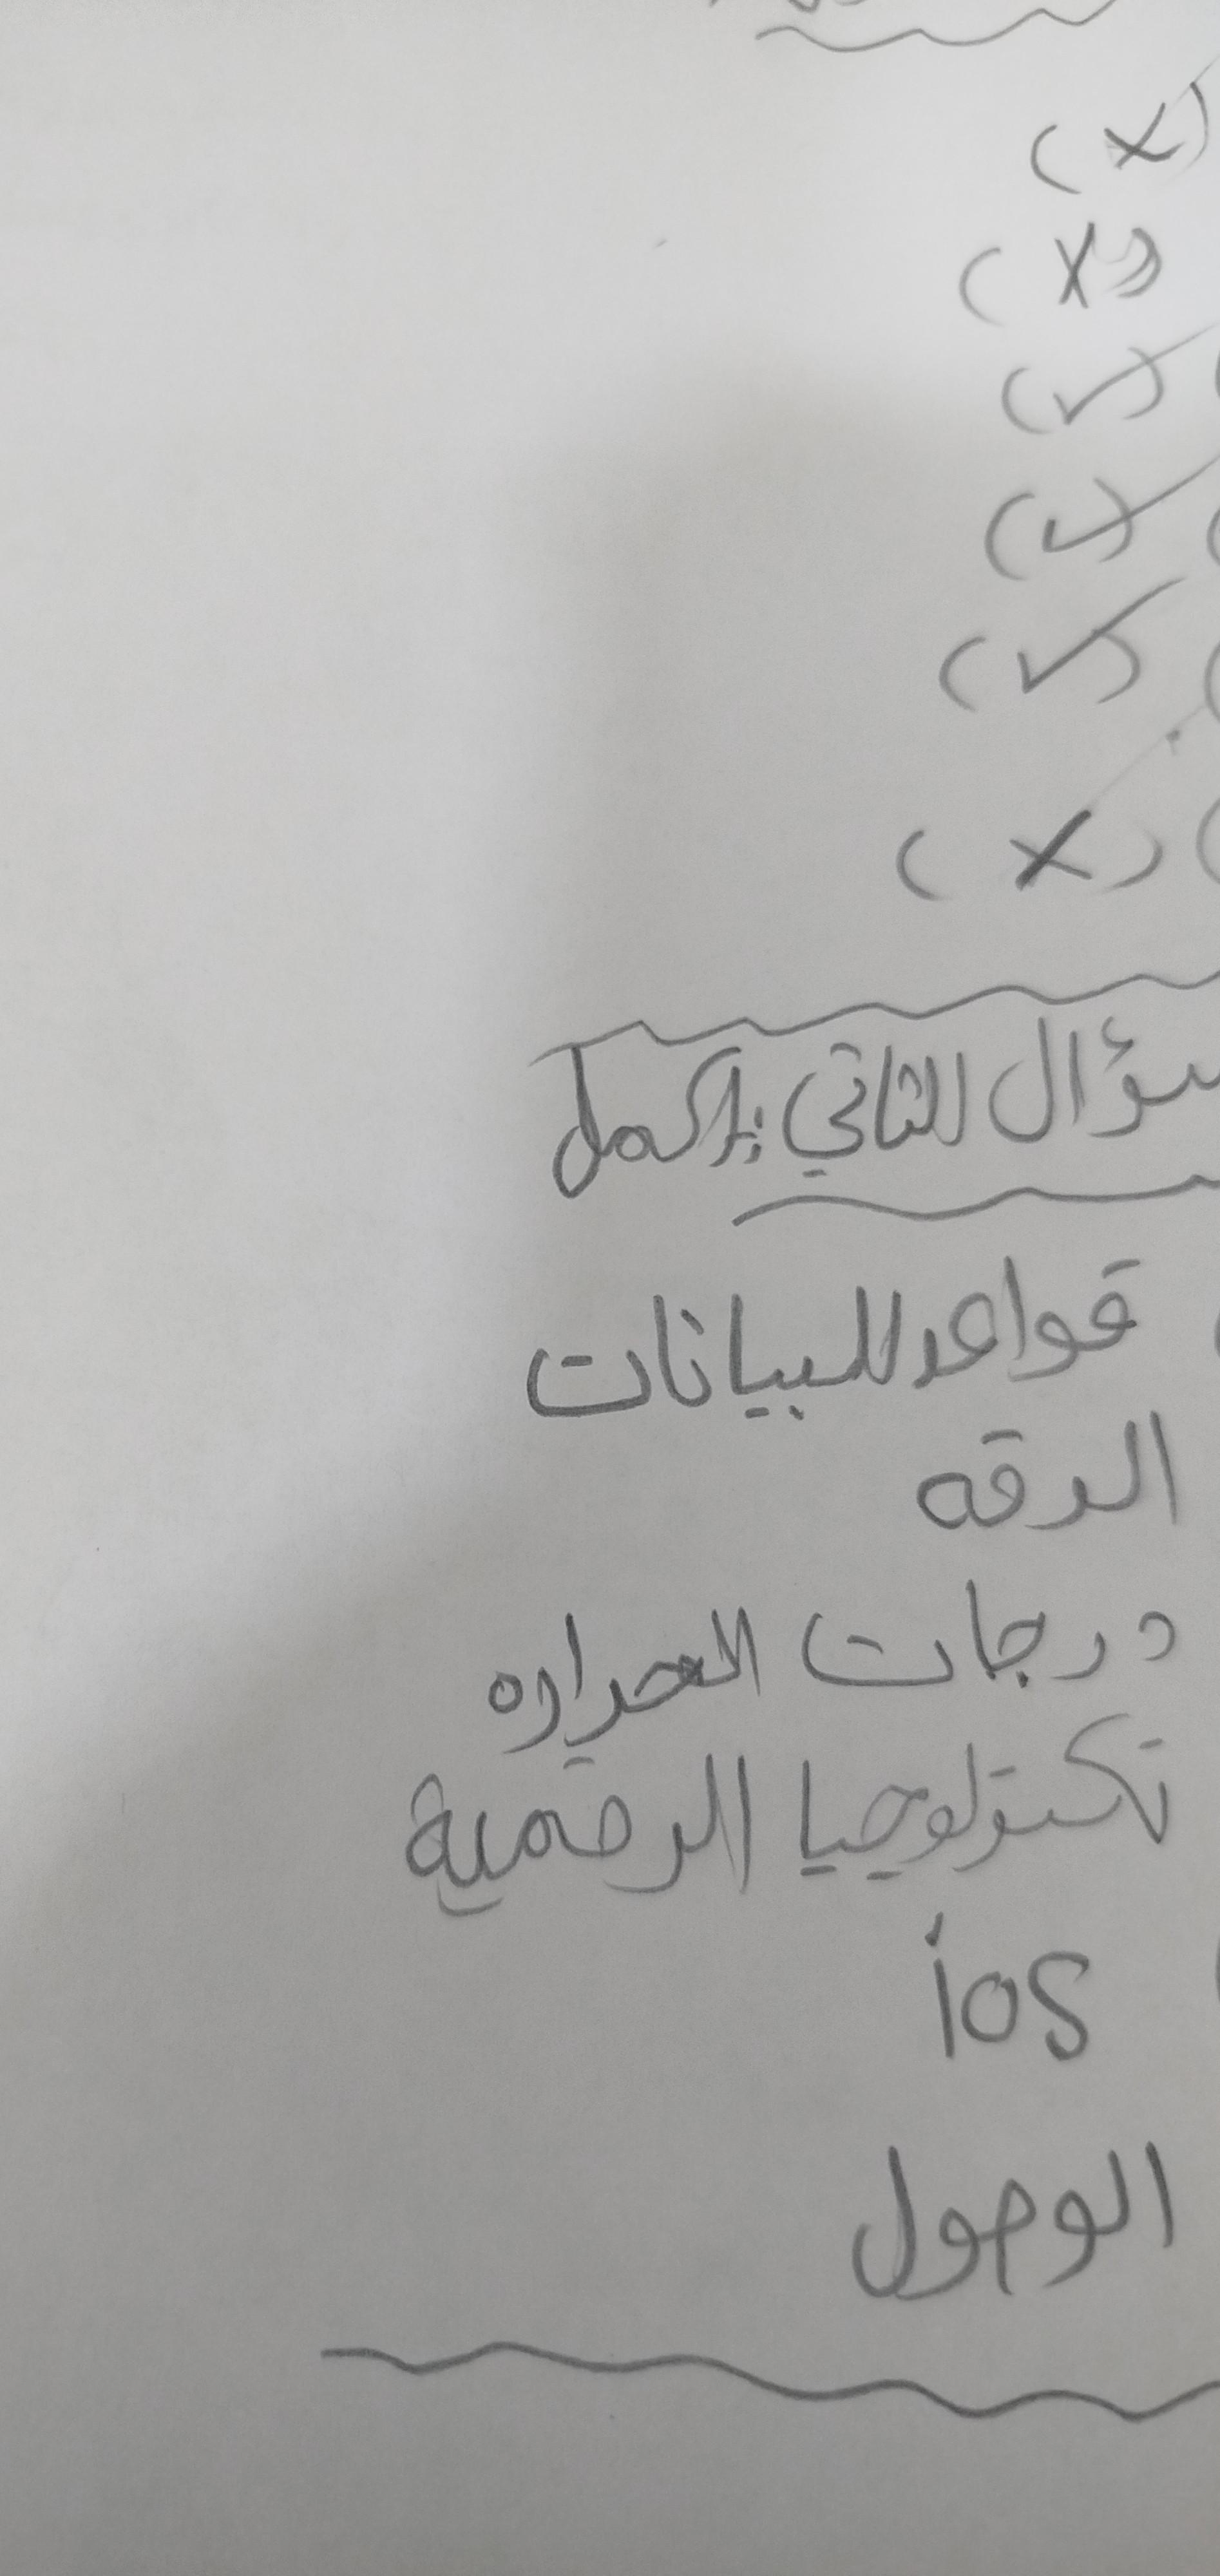 (X)
(X)
(✓)
(✓)
(✓)
(X)
سؤال الثاني: اكمل
قواعد البيانات
الدقه
درجات الحراره
تكنولوجيا الرقمية
ios
الوصول